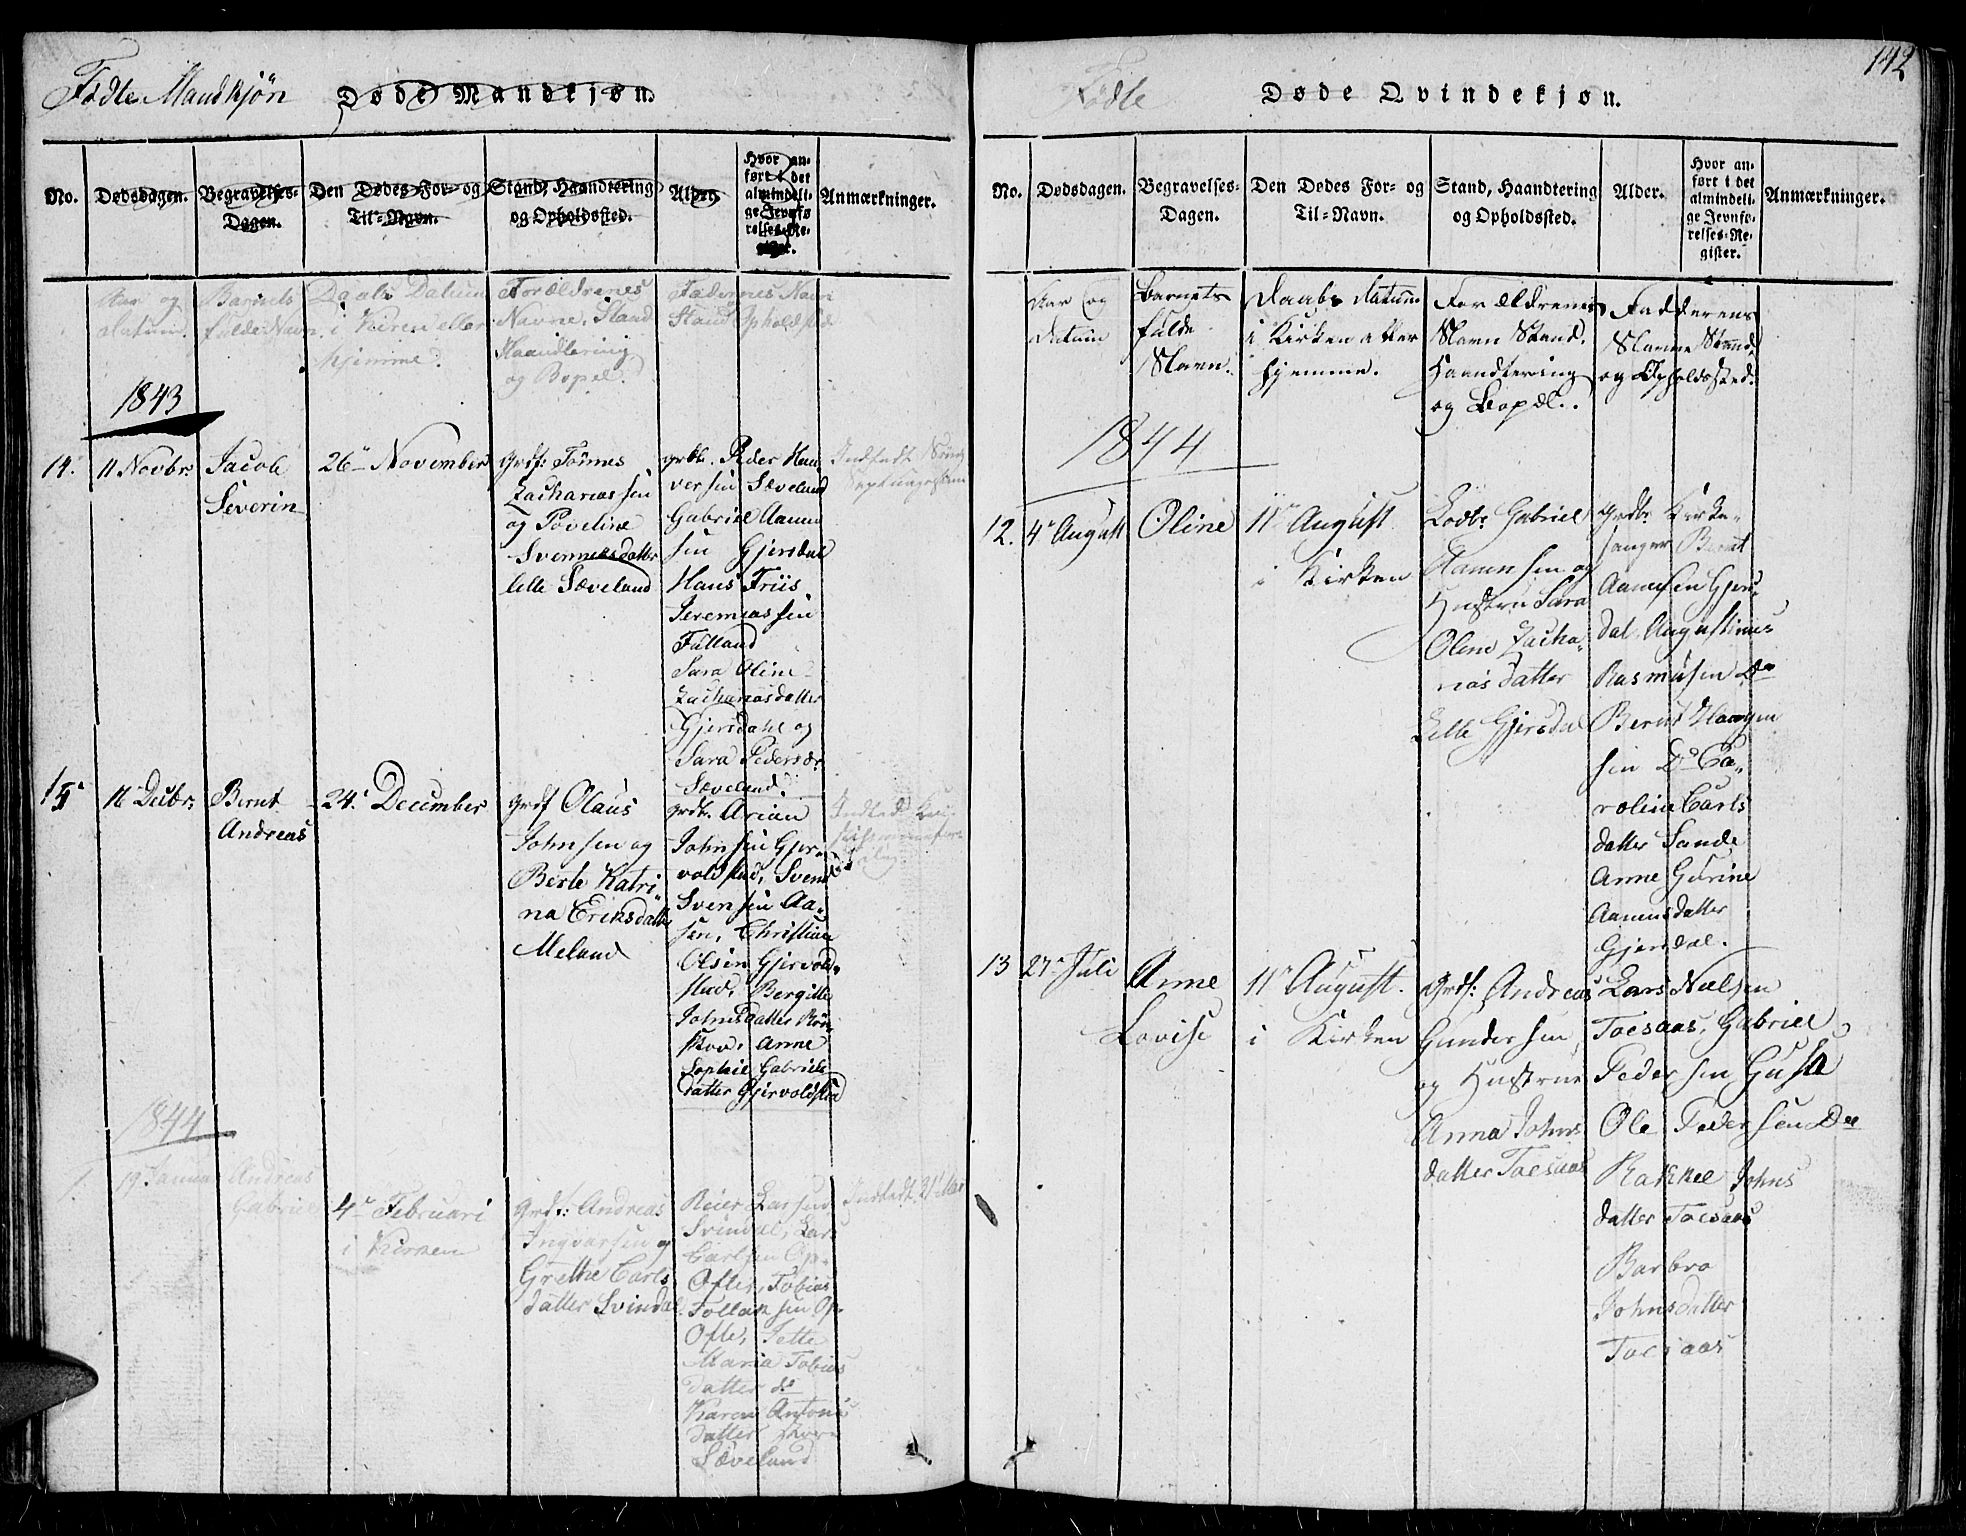 Fødte Mandkjön
Døde Mandkjøn.
No.
Dødsdagen.
Begravelses-
Dagen.
Den Dødes For- og
Til-Navn.
Stand, Haandtering
og Opholdssted.
Alder.
Hvor an-
ført i det
almindeli-
ge Jevnfø-
relses-Re-
gister.
Anmærkninger.
Aar og
Datum.
Barnets
fulde Navn.
Daabs Datum
i Kirken eller
hjemme.
Forældrenes
Navne, Stand
Haandtering
og Bopel.
Faddernes Navn
Stand Opholdsted
1843
14.
11 Novbr.
Jacob
Severin
26de November
Grdf: Tönnes
Zachariassen
og Poveline
Svenningsdatter
lille Sæveland
grdbr. Peder Han
versen Sæveland
Gabriel Aanen
sen Gjersdal
Hans Friis
Jeremiassen
Fulland
Sara Oline
Zachariasdatter
Gjersdahl og
Sara Pedersdr.
Sæveland.
Indtadt
15
Decbr.
Bernt
Andreas
24. December
grdf Olaus
Johnsen og
Berte Katri
na Eriksdatter
Meland
grdb. Arian
Johnsen Gjer-
voldstad, Svend
Svensen Aa-
sen, Christian
Olsen Gjervold-
stad, Bergitte
Johnsdatter Rön-
skov, Anne
Sophie Gabriels
datter Gjervoldstad
Indtad
1844
1.
19 Januar
Andreas
Gabriel
4de Februari
i Kirken
grdf: Andreas
Ingvarsen og
Grethe Carls
datter Svindal
Reier Larsen
Svindal, Lars
Carlsen Op-
Ofte, Tobias
Tollaksen Op-
Ofte, Jette
Maria Tobias
datter do
Karen Antoni
datter
Sæveland
Indtadt 31 Mar
142
Fødte
Døde Qvindekjøn.
No.
Dødsdagen.
Begravelses-
Dagen.
Den Dødes For- og
Til-Navn.
Stand, Haandtering
og Opholdssted.
Alder.
Hvor an-
ført i det
almindeli-
ge Jevnfø-
relses-Re-
gister.
Anmærkninger.
Aar og
Datum
Barnets
fulde
Navn.
Daabs Datum
i Kirken eller
hjemme.
Forældrenes
Navn Stand.
Haandtering
og Bopæl.
Fadderens
Navne Stand,
og Opholdssted.
1844
12.
4de August
Oline
11te August
i Kirken
Lodbr Gabriel
Aanensen og
Hustru Sara
Oline Zacha-
riasdatter
Lille Gjersdal
Grdbr. Kirke-
sanger Bernt
Aanesen Gjers-
dal. Augustinus
Rasmusen Do
Bernt Haagen
sen Do Ca-
roline Carls
datter Sande
Anne Gurine
Aanensdatter
Gjersdal.
13
27de Juli
Anne
Lovise
11te August.
i Kirken
Grdf: Andreas
Gundersen
og Hustrue
Anna Johns
datter Toesaas
Lars Nielsen
Toesaas, Gabriel
Pedersen Guså
Ole Pedersen Do
Rakkel Johns
datter Toesaas
Barbro
Johnsdatter
Toesaas